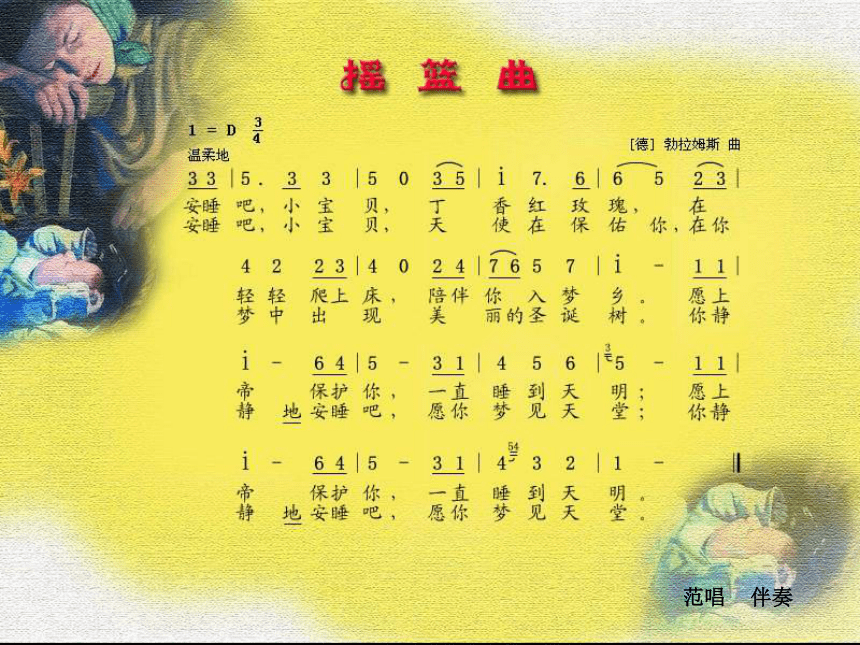 摇 篮 曲
1 = D 3/4
温柔地
[德] 勃拉姆斯 曲
3 3 | 5 . 3 3 | 5 0 3 5 | i 7. 6 | 6 5 2 3 |
安睡 吧，小 宝 贝， 丁 香 红 玫 瑰， 在
安睡 吧，小 宝 贝， 天 使 在 保 佑 你，在你
4 2 2 3 | 4 0 2 4 | 7 6 5 7 | i - 1 1 |
轻 轻 爬上 床， 陪伴 你 入 梦 乡。 愿上
梦 中 出 现 美 丽的圣 诞 树。 你静
i - 6 4 | 5 - 3 1 | 4 5 6 | 3 5 - 1 1 |
帝 保护 你， 一直 睡 到 天 明； 愿上
静 地安睡 吧， 愿你 梦 见 天 堂； 你静
i - 6 4 | 5 - 3 1 | 4 54 3 2 | 1 - ‖
帝 保护 你， 一直 睡 到 天 明。
静 地安睡 吧， 愿你 梦 见 天 堂。
范唱 伴奏